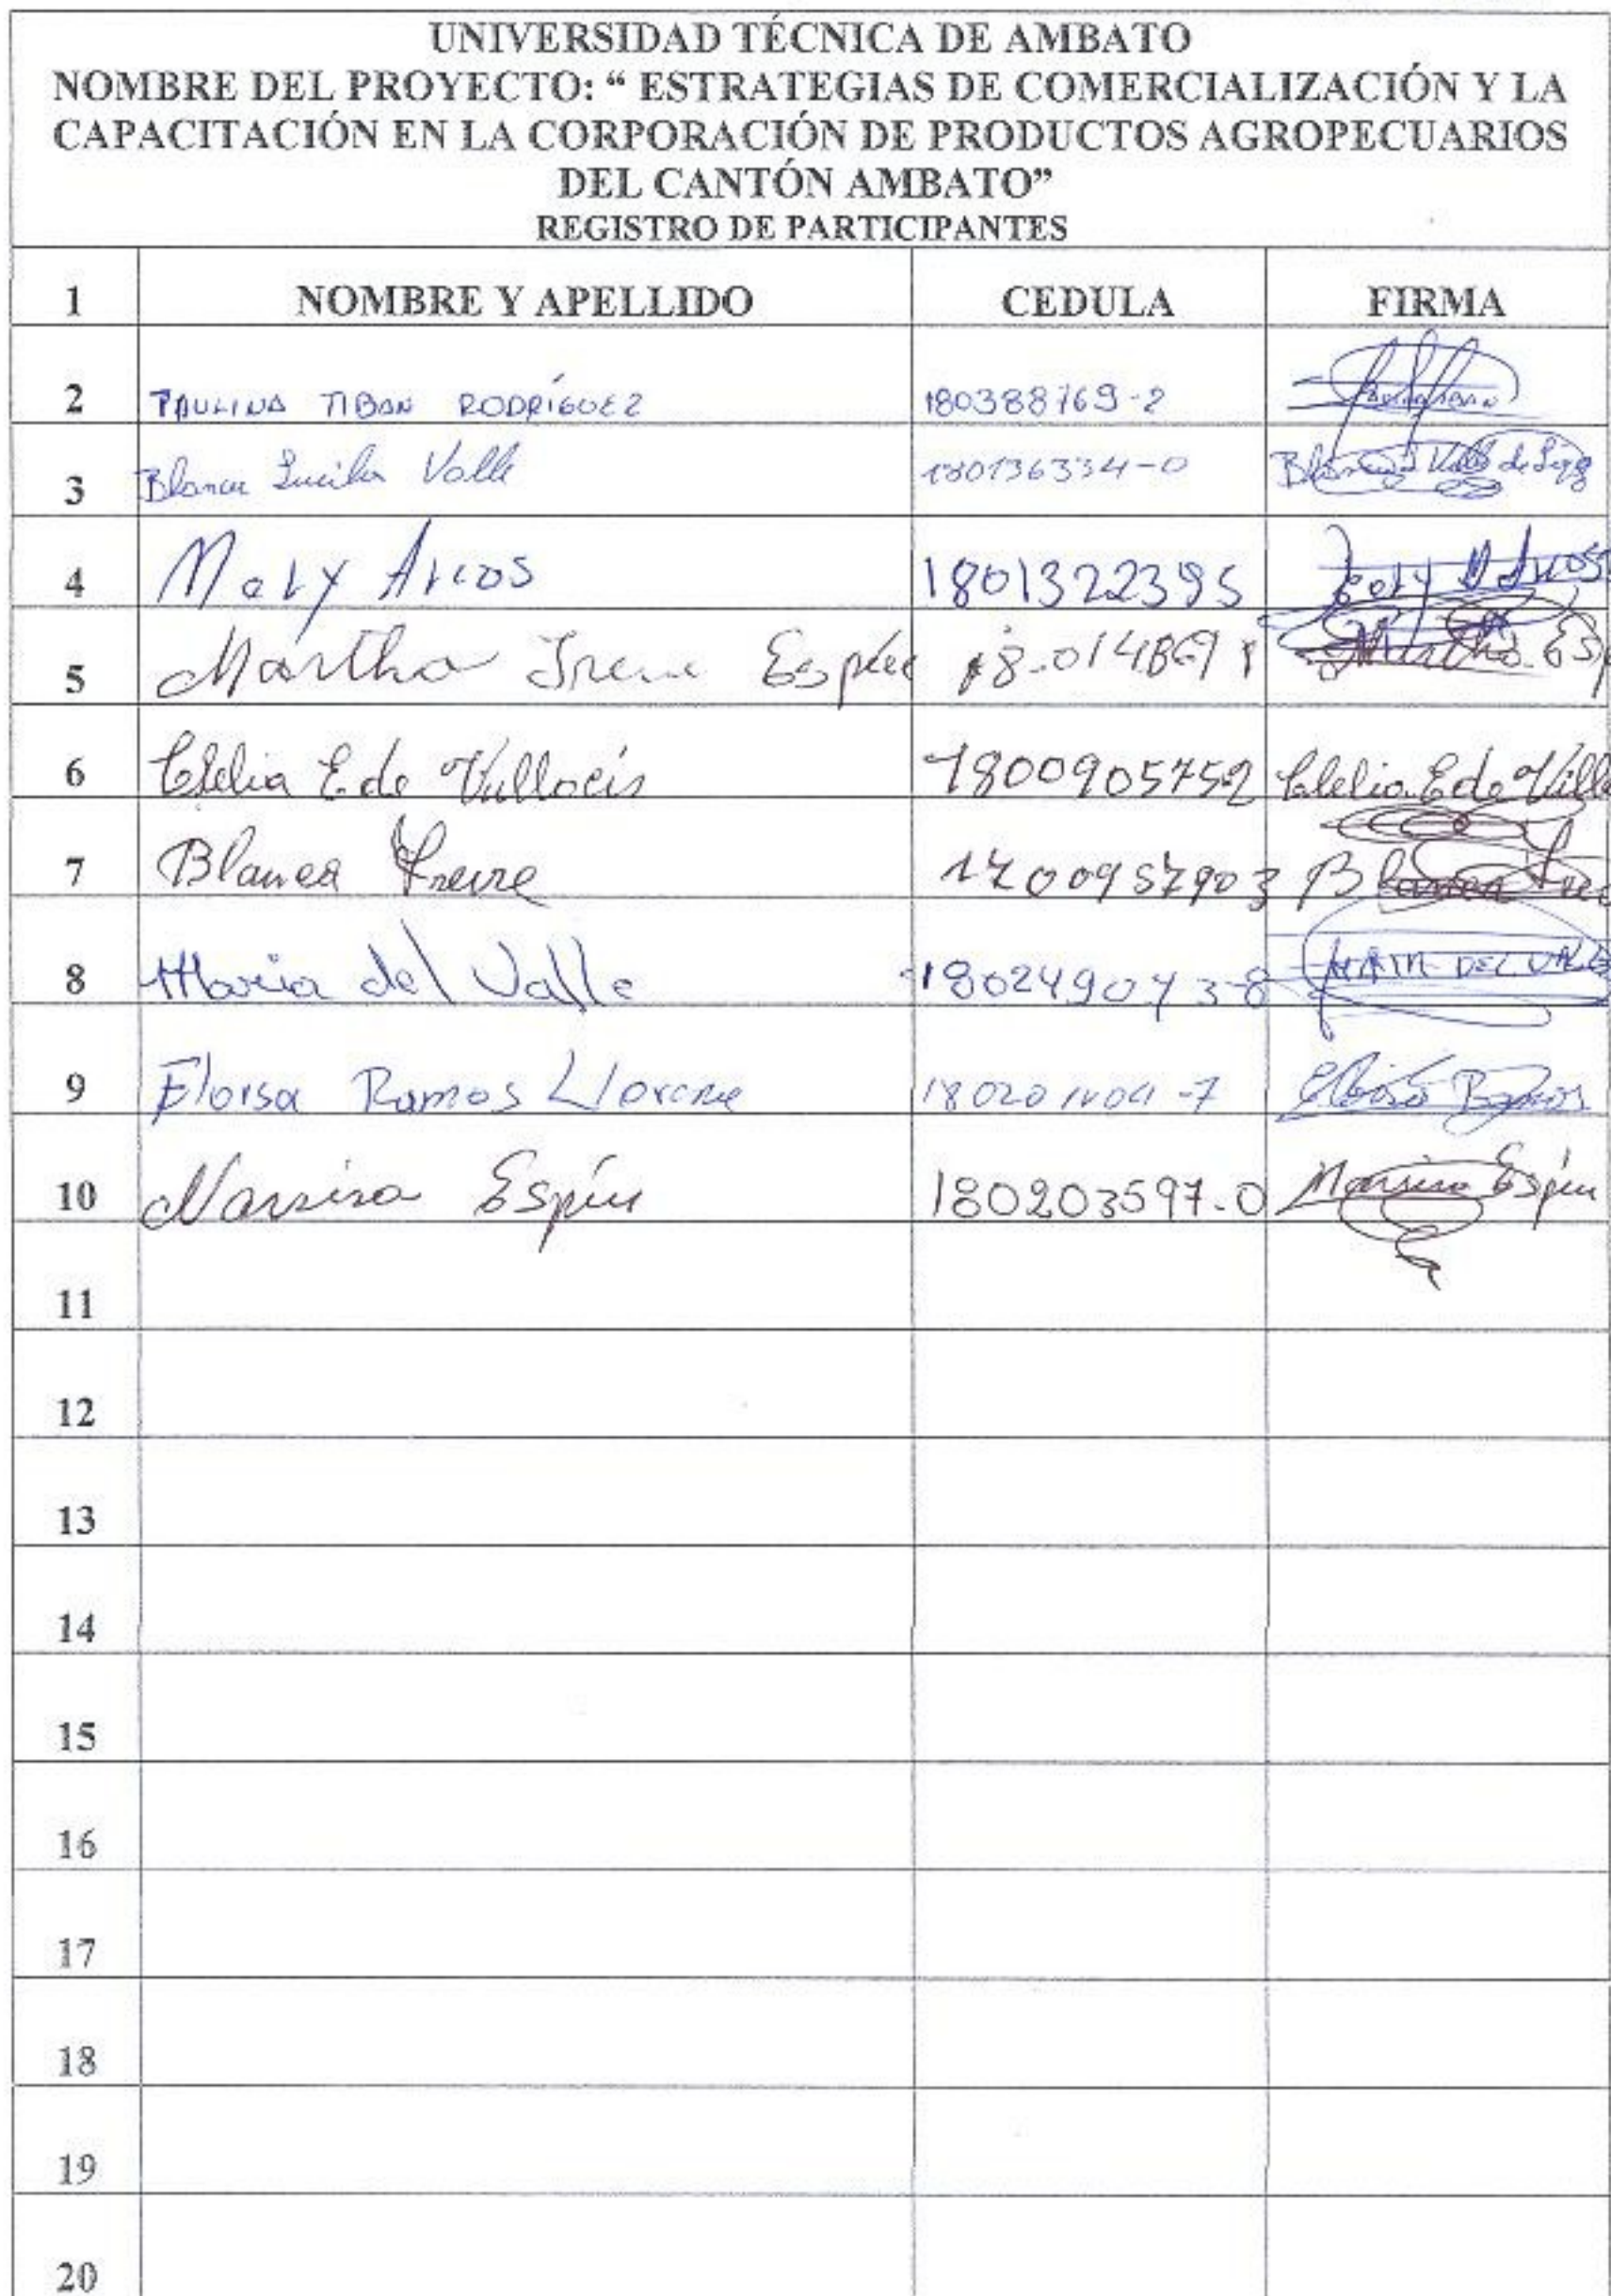 UNIVERSIDAD TÉCNICA DE AMBATO
NOMBRE DEL PROYECTO: “ ESTRATEGIAS DE COMERCIALIZACIÓN Y LA
CAPACITACIÓN EN LA CORPORACIÓN DE PRODUCTOS AGROPECUARIOS
DEL CANTÓN AMBATO”
REGISTRO DE PARTICIPANTES
1 NOMBRE Y APELLIDO CEDULA FIRMA
2 PAULINA TIBAN RODRÍGUEZ 180388769-2
3 Blanca Lucila Valle 180136334-0 Blanca Valle de
4 Mery Arcos 1801322395
5 Martha Irene Espín Martha Esp
6 Clelia E de Villacis 1800905752 Clelia E de Villa
7 Blanca Freire 1700957903 Blanca
8 Maria del Valle 180249073-8 DEL VALLE
9 Eloisa Ramos Eloisa Ramos
10 Narsisa Espín 180203597-0 Narsisa Espín
11
12
13
14
15
16
17
18
19
20